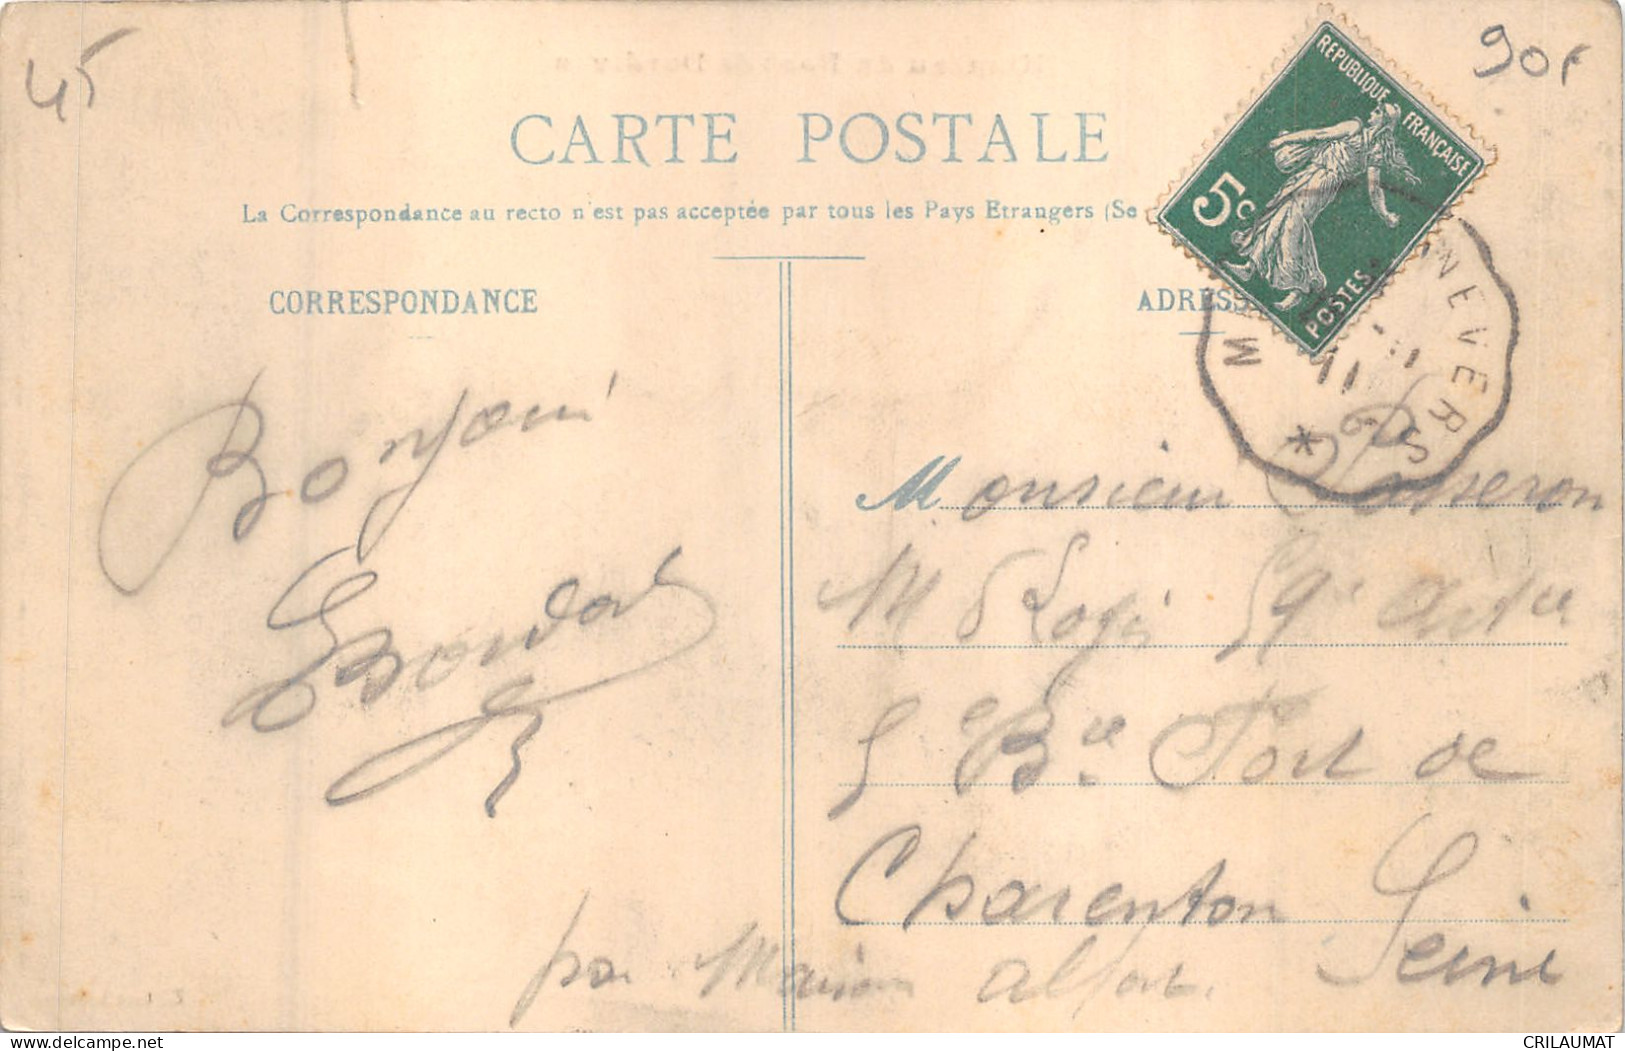 45
90f
CARTE POSTALE
La Correspondance au recto n'est pas acceptée par tous les Pays Etrangers (Se
REPUBLIQUE FRANÇAISE
5c
POSTES
CORRESPONDANCE
ADRESS
M NEVERS
11
*
Bonjour
Monsieur
M d Logis
5e Bie Fort de
Charenton Seine
par Maison Alfort.
CRILAUMAT